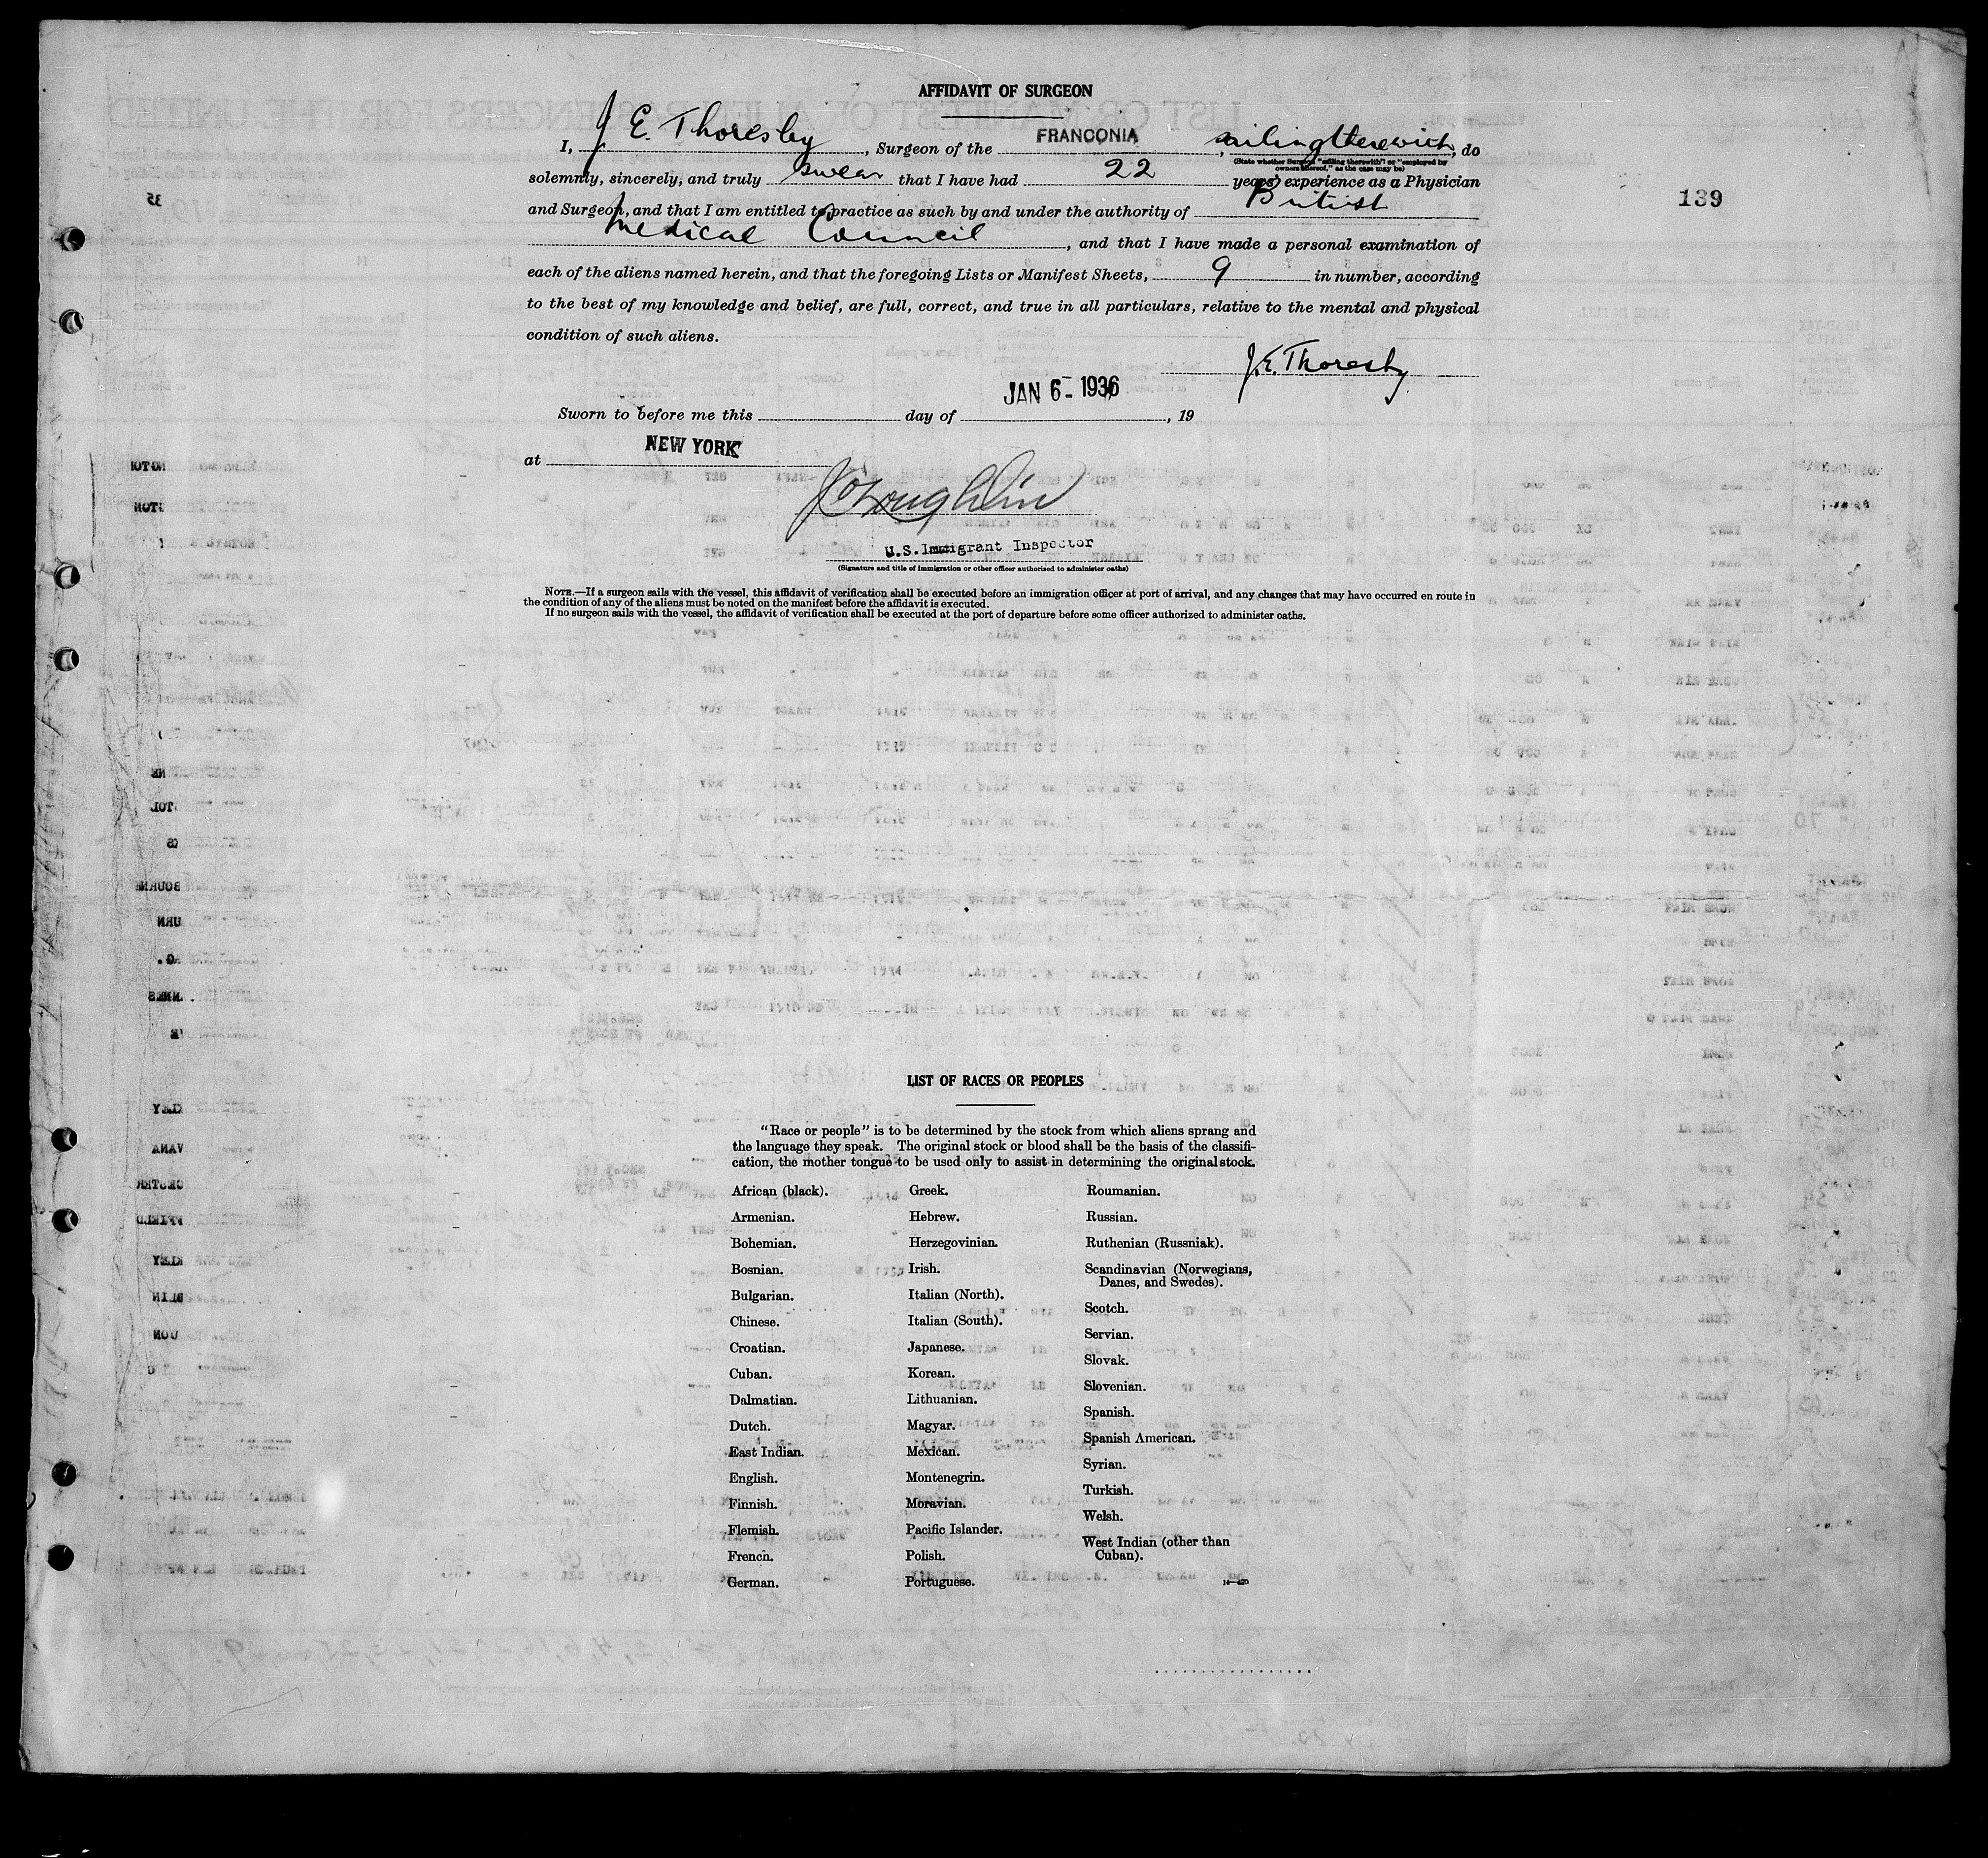 AFFIDAVIT OF SURGEON
I, J E. Thoresby, Surgeon of the FRANCONIA, sailing therewith, do
(State whether Surgeon "sailing therewith" or "employed by
owners thereof," as the case may be)
solemnly, sincerely, and truly swear that I have had 22 years' experience as a Physician
and Surgeon, and that I am entitled to practice as such by and under the authority of British
Medical Council, and that I have made a personal examination of
each of the aliens named herein, and that the foregoing Lists or Manifest Sheets, 9 in number, according
to the best of my knowledge and belief, are full, correct, and true in all particulars, relative to the mental and physical
condition of such aliens.
139
J.E. Thoresby
JAN 6- 1936
Sworn to before me this day of , 19
at NEW YORK
U.S. Immigrant Inspector
(Signature and title of immigration or other officer authorized to administer oaths)
NOTE.—If a surgeon sails with the vessel, this affidavit of verification shall be executed before an immigration officer at port of arrival, and any changes that may have occurred en route in
the condition of any of the aliens must be noted on the manifest before the affidavit is executed.
If no surgeon sails with the vessel, the affidavit of verification shall be executed at the port of departure before some officer authorized to administer oaths.
LIST OF RACES OR PEOPLES
"Race or people" is to be determined by the stock from which aliens sprang and
the language they speak. The original stock or blood shall be the basis of the classifi-
cation, the mother tongue to be used only to assist in determining the original stock.
African (black).
Armenian.
Bohemian.
Bosnian.
Bulgarian.
Chinese.
Croatian.
Cuban.
Dalmatian.
Dutch.
East Indian.
English.
Finnish.
Flemish.
French.
German.
Greek.
Hebrew.
Herzegovinian.
Irish.
Italian (North).
Italian (South).
Japanese.
Korean.
Lithuanian.
Magyar.
Mexican.
Montenegrin.
Moravian.
Pacific Islander.
Polish.
Portuguese.
Roumanian.
Russian.
Ruthenian (Russniak).
Scandinavian (Norwegians,
Danes, and Swedes).
Scotch.
Servian.
Slovak.
Slovenian.
Spanish.
Spanish American.
Syrian.
Turkish.
Welsh.
West Indian (other than
Cuban).